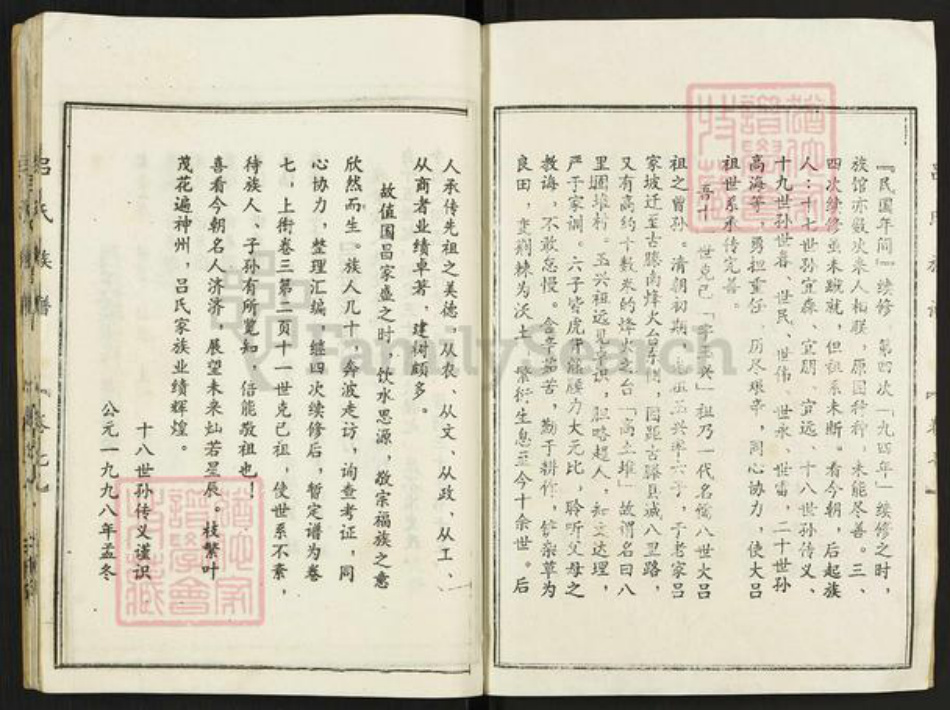 『民国年间』续修 第四次「一九四年」续修之时，
族馆亦数次来人相联，原因种种，未能尽善。三、
四次续修虽未概就，但祖系未断。看今朝，后起族
人：十七世孙宜森、宜朋、宜远、十八世孙传义、
十九世孙世喜、世民、世伟、世永、世雷，二十世孙
高海等，勇担重任，历尽艰辛，同心协力，使大吕
祖世系承传完善。
吾十 世克己「字玉兴」祖乃一代名儒八世大吕
祖之曾孙。清朝初期， 祖玉兴率六子，于老家吕
家坡迁至古滕南烽火台 侧，因距古滕县城八里路，
又有高约十数米的烽火之台「高土堆」故谓名曰八
里堌堆村。玉兴祖远见卓识，胆略超人，知文达理，
严于家训。六子皆虎 腰力大元比，聆听父母之
教诲，不敢怠慢。含辛茹苦，勤于耕作，铲杂草为
良田，变荆棘为沃土，繁衍生息至今十余世。后
人承传先祖之美德，从农、从文、从政、从工、
从商者业绩卓著，建树颇多。
故值国昌家盛之时，饮水思源，敬宗福族之意
欣然而生。族人几十 奔波走访，询查考证，同
心协力，整理汇编，继四次续修后，暂定谱为卷
七，上衔卷三第二页十一世克己祖，使世系不紊，
待族人、子孙有所览知，倍能敬祖也！
喜看今朝名人济济，展望未来灿若星辰。枝繁叶
茂花遍神州，吕氏家族业绩辉煌。
十八世孙传义谨识
公元一九九八年孟冬
吕氏族谱
FamilySearch